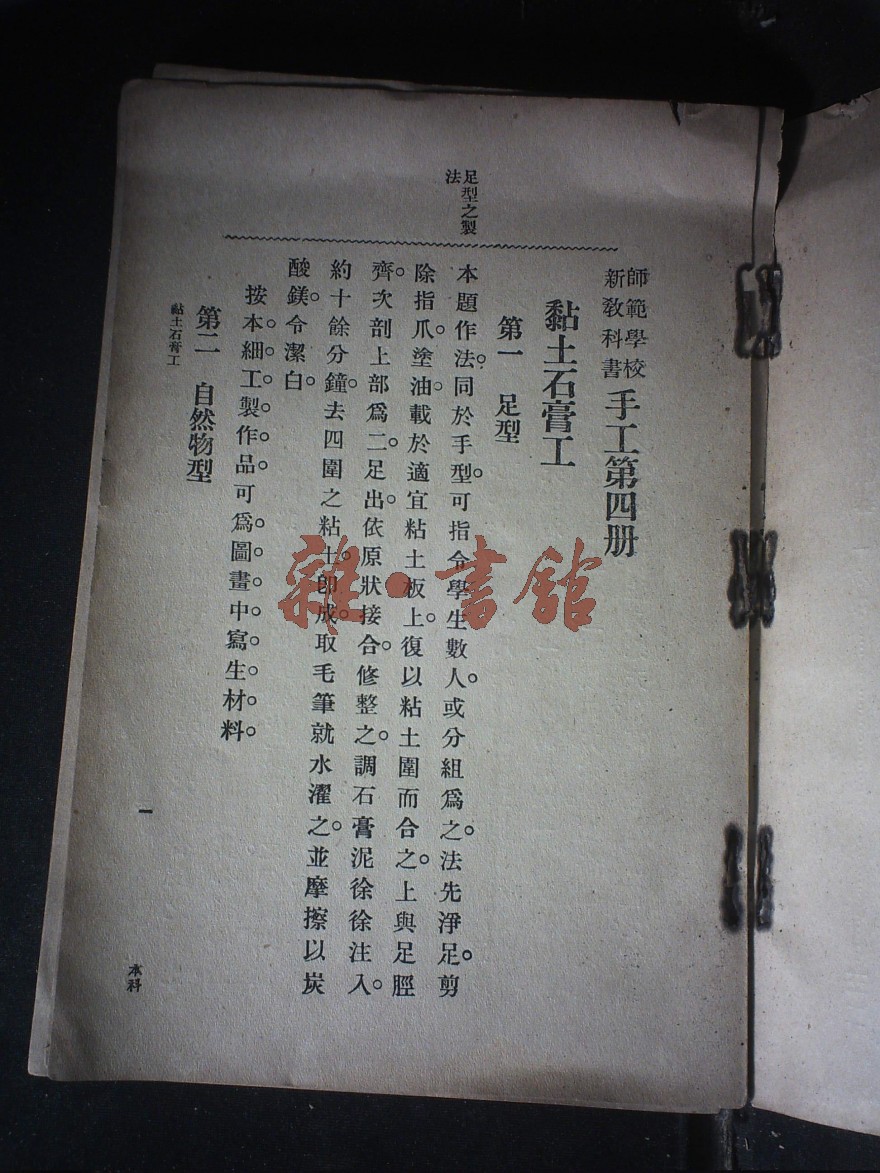 足型之製
法
師範學校
新教科書
手工第四册
黏土石膏工
第一 足型
本題作法。同於手型。可指令學生數人。或分組爲之。法先淨足。剪
除指爪。塗油。載於適宜粘土板上。復以粘土圍而合之。上與足脛
齊。次剖上部爲二。足出。依原狀接合。修整之。調石膏泥徐徐注入。
約十餘分鐘。去四圍之粘土。卽成。取毛筆就水濯之。並摩擦以炭
酸鎂。令潔白。
按本細工製作品。可爲圖畫中寫生材料。
第二 自然物型
黏土石膏工
一
本科
雜·書館